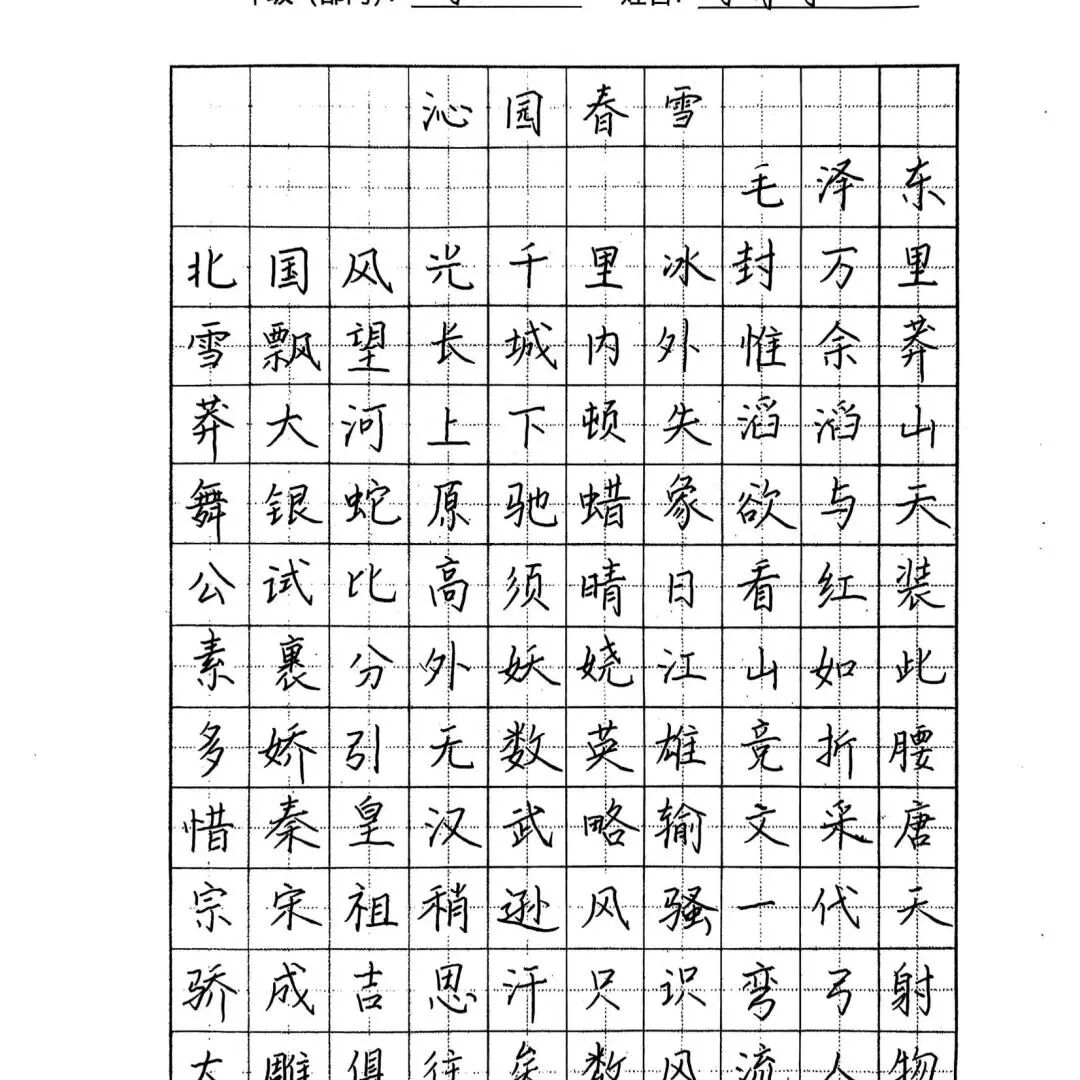 沁园春雪
毛泽东
北国风光千里冰封万里
雪飘望长城内外惟余莽
莽大河上下顿失滔滔山
舞银蛇原驰蜡象欲与天
公试比高须晴日看红装
素裹分外妖娆江山如此
多娇引无数英雄竞折腰
惜秦皇汉武略输文采唐
宗宋祖稍逊风骚一代天
骄成吉思汗只识弯弓射
大雕俱往矣数风流人物